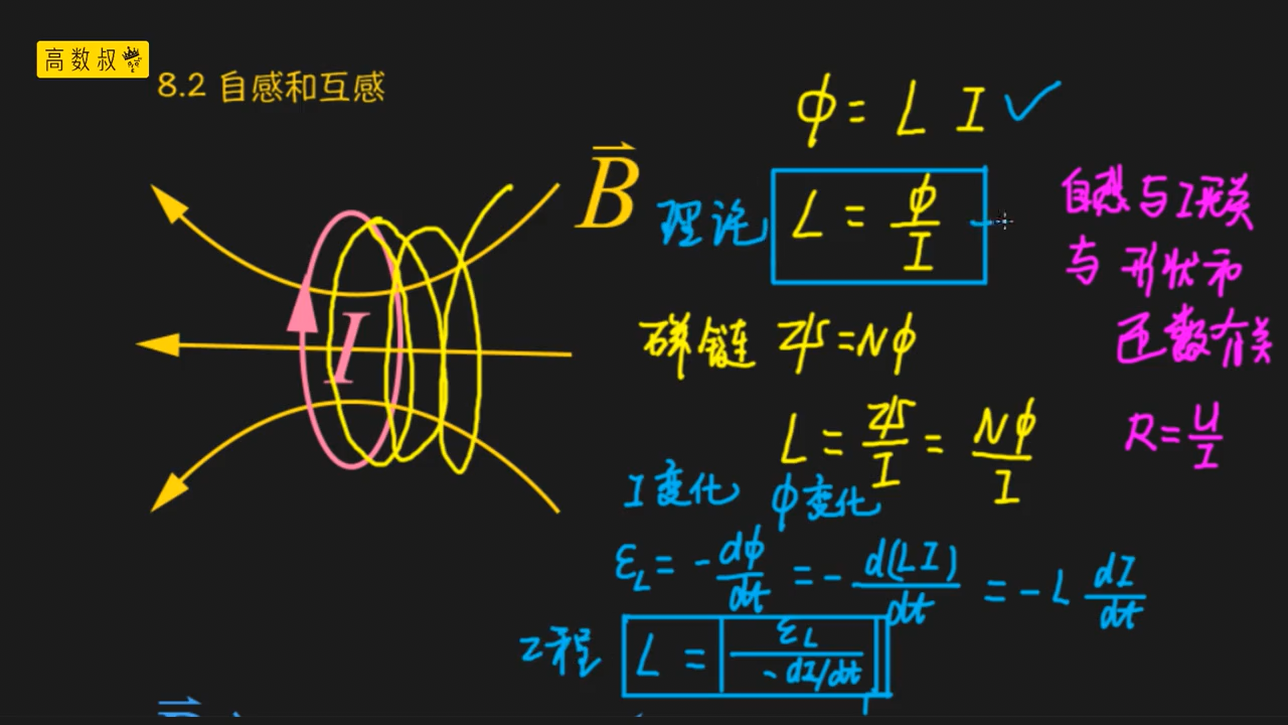 高数叔
8.2 自感和互感
B
I
Φ = L I ✓
理论 L = Φ/I
自感与I无关
与形状和
匝数有关
磁链 Ψ = NΦ
L = Ψ/I = NΦ/I
R = U/I
I变化 Φ变化
ε_L = -dΦ/dt = -d(LI)/dt = -L dI/dt
工程 L = |ε_L/-dI/dt|